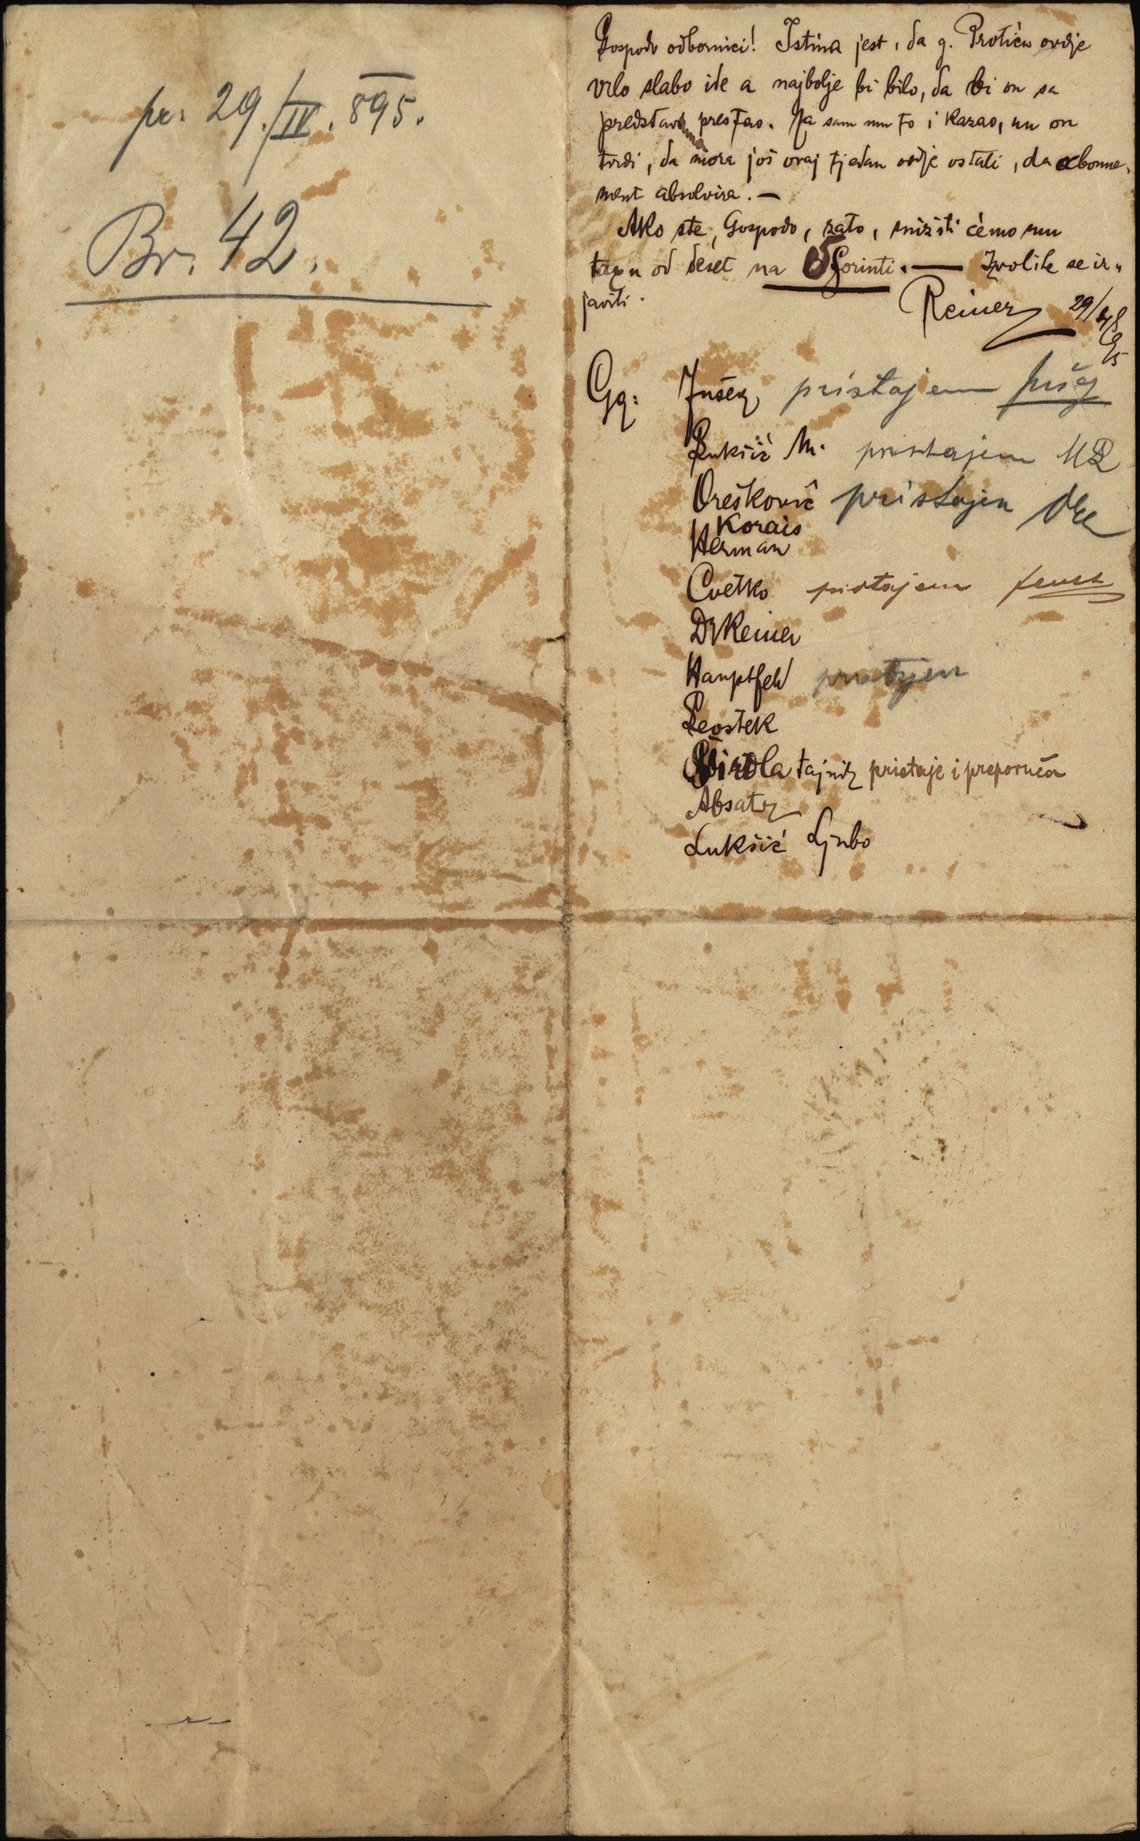 pr. 29./IV. 895.
Br. 42.
Gospodo odbornici! Istina jest, da g. Protiću ovdje
vrlo slabo ide a najbolje bi bilo, da bi on sa
predstavama prestao. Ja sam mu to i kazao, nu on
tvrdi, da mora još ovaj tjedan ovdje ostati, da abonne-
ment absolvira. —
Ako ste, Gospodo, zato, snizit ćemo mu
taxu od deset na 5 forinti. — Izvolite se iz-
javiti.
Reiner 29/4 895
Gg: Jušez pristajem
Lukšić M. pristajem ML
Orešković pristajem
Korais
Herman
Cvetko pristajem
Dr Reiner
Hauptfeld pristajem
Leostek
tajnik pristaje i preporuča
Absatz
Lukšić Ljubo